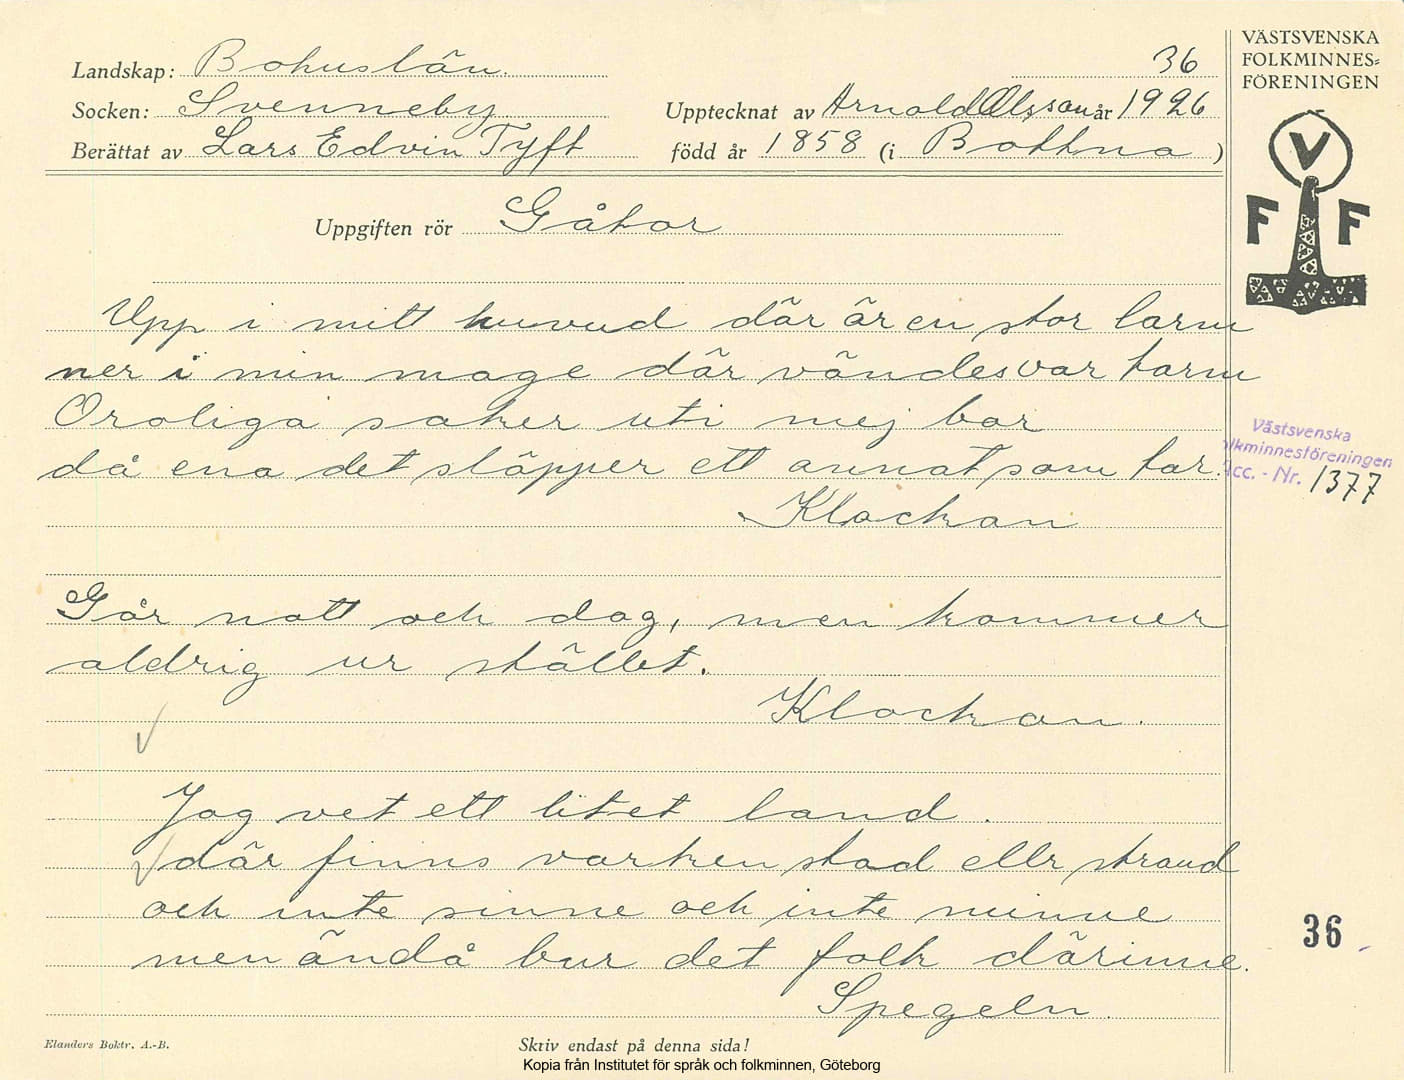 Landskap: Bohuslän.
36
VÄSTSVENSKA
FOLKMINNES-
FÖRENINGEN
Socken: Svenneby
Upptecknat av Arnold Olsson år 1926
Berättat av Lars Edvin Tyft
född år 1858 (i Bottna )
V
F F
Uppgiften rör Gåtor
Upp i mitt huvud där är en stor larm
ner i min mage där vändes var tarm
Oroliga saker uti mej bor
då ena det släpper ett annat som tar.
Klockan
Västsvenska
olkminnesföreningen
Acc. - Nr. 1377
Går natt och dag, men kommer
aldrig ur stället.
Klockan.
Jag vet ett litet land.
där finns varken stad ellr strand
och inte sinne och inte minne
men ändå bur det folk därinne.
Spegeln.
36
Elanders Boktr. A.-B.
Skriv endast på denna sida!
Kopia från Institutet för språk och folkminnen, Göteborg